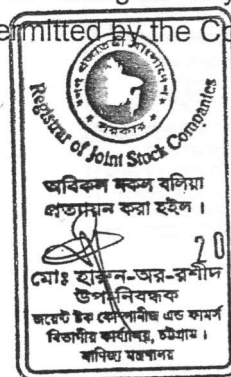 ermitted by the Co
গণপ্রজাতন্ত্রী বাংলাদেশ
সরকার
Registrar of Joint Stock Companies
অবিকল নকল বলিয়া
প্রত্যায়ন করা হইল ।
20
মোঃ হারুন-অর-রশীদ
উপ-নিবন্ধক
জয়েন্ট ষ্টক কোম্পানীজ এন্ড ফার্মস
বিভাগীয় কার্যালয়, চট্টগ্রাম ।
বাণিজ্য মন্ত্রণালয়